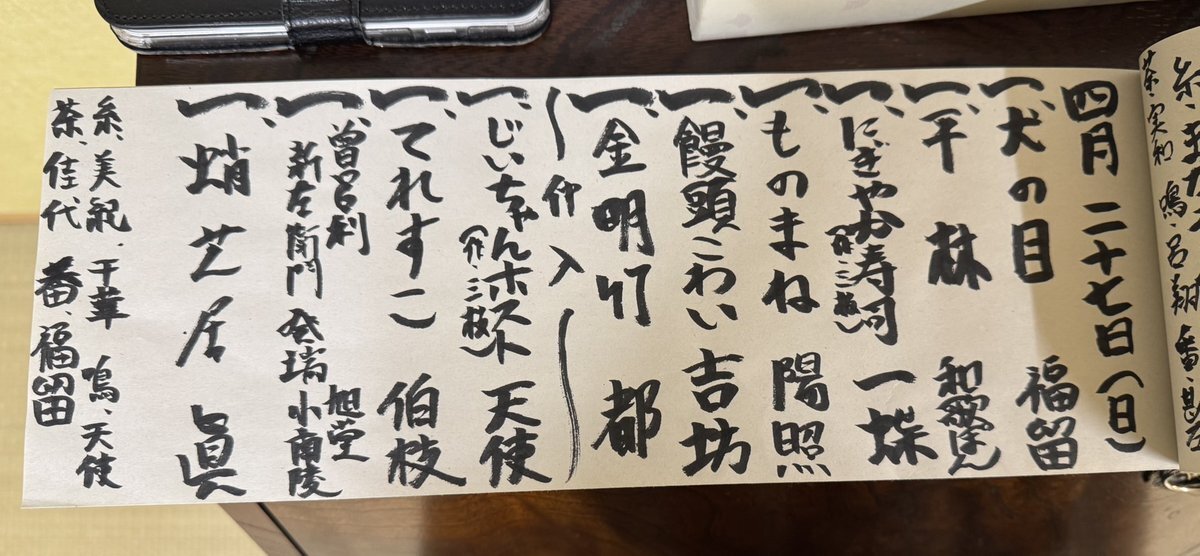 四月二十七日(日)
一、犬の目 福留
一、平林 和歌ぽん
一、にぎやか寿司 一蝶
(作・三枝)
一、ものまね 陽照
一、饅頭こわい 吉坊
一、金明竹 都
仲入
一、じいちゃんホスト 天使
(作・三枝)
一、てれすこ 伯枝
一、曽呂利 旭堂
新左衛門 発端 小南陵
一、蛸芝居 眞
糸、美紀、千華 鳴、天使
茶、佳代 番、福留
茶、実和